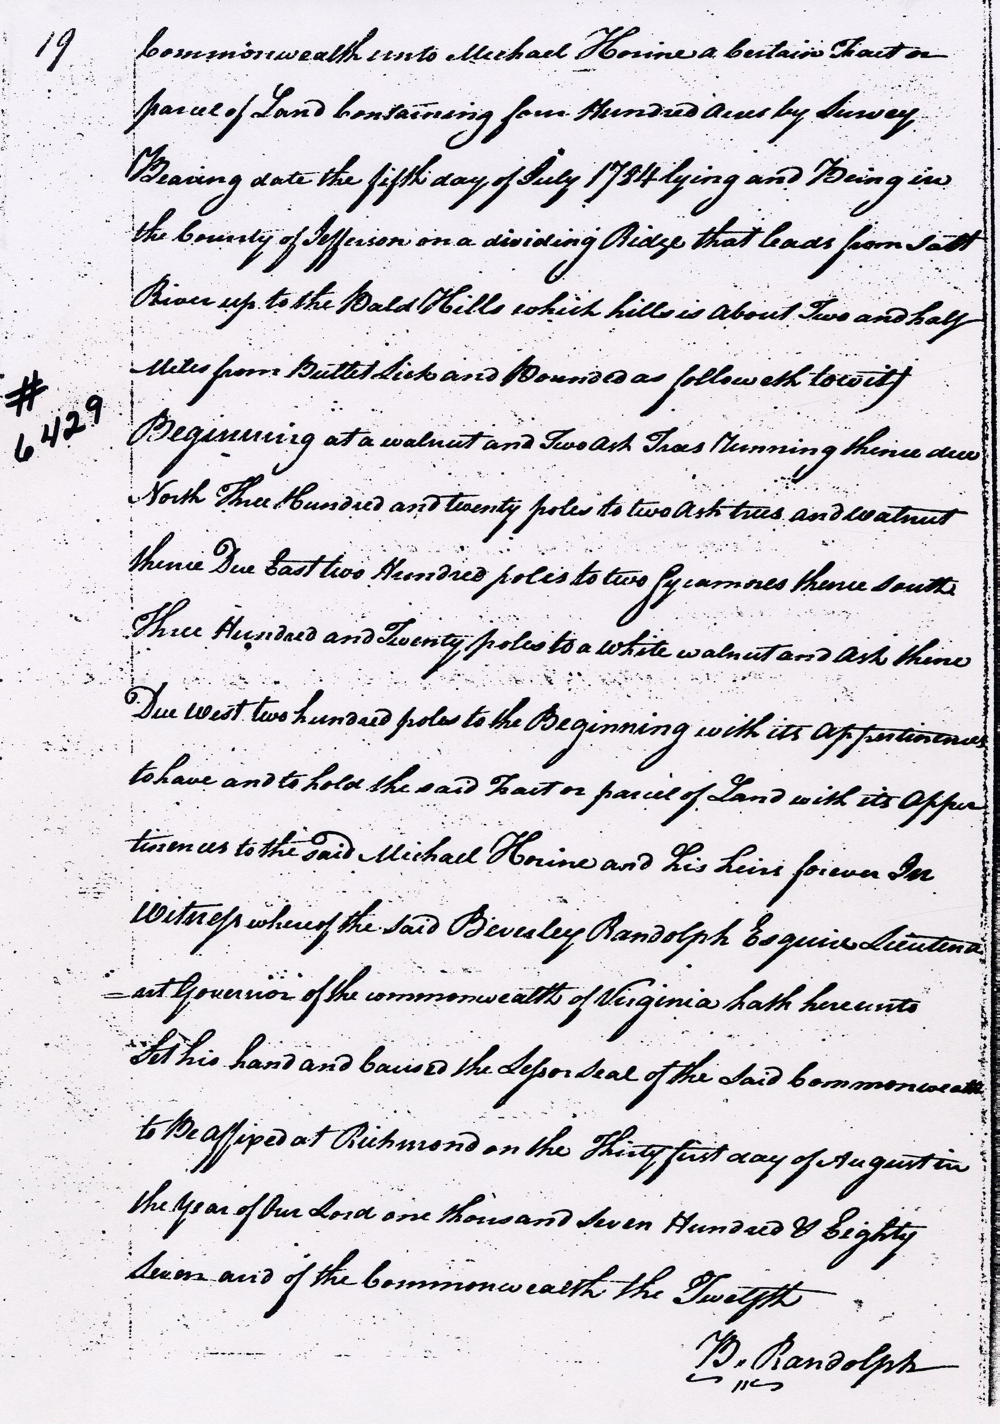 19
Commonwealth unto Michael Horine a Certain Tract or
parcel of Land Containing four Hundred Acres by Survey
Bearing date the fifth day of July 1784 lying and Being in
the County of Jefferson on a dividing Ridge that leads from Salt
River up to the Bald Hills which hills is about Two and half
Miles from Bullet Lick and Bounded as followeth towit
#
6429
Beginning at a walnut and Two Ash Trees Running thence due
North Three Hundred and twenty poles to two Ash trees and walnut
thence Due East two Hundred poles to two Sycamores thence south
Three Hundred and Twenty poles to a white walnut and Ash thence
Due West two hundred poles to the Beginning with its Appertinences
to have and to hold the said Tract or parcel of Land with its Apper
tinences to the said Michael Horine and his heirs forever In
Witness whereof the said Beverley Randolph Esquire Lieutena
=nt Governor of the commonwealth of Virginia hath hereunto
Set his hand and Caused the Lesser Seal of the said Commonwealth
to Be Affixed at Richmond on the Thirty first day of August in
the Year of Our Lord one thousand Seven Hundred & Eighty
Seven and of the Commonwealth the Twelfth
B. Randolph